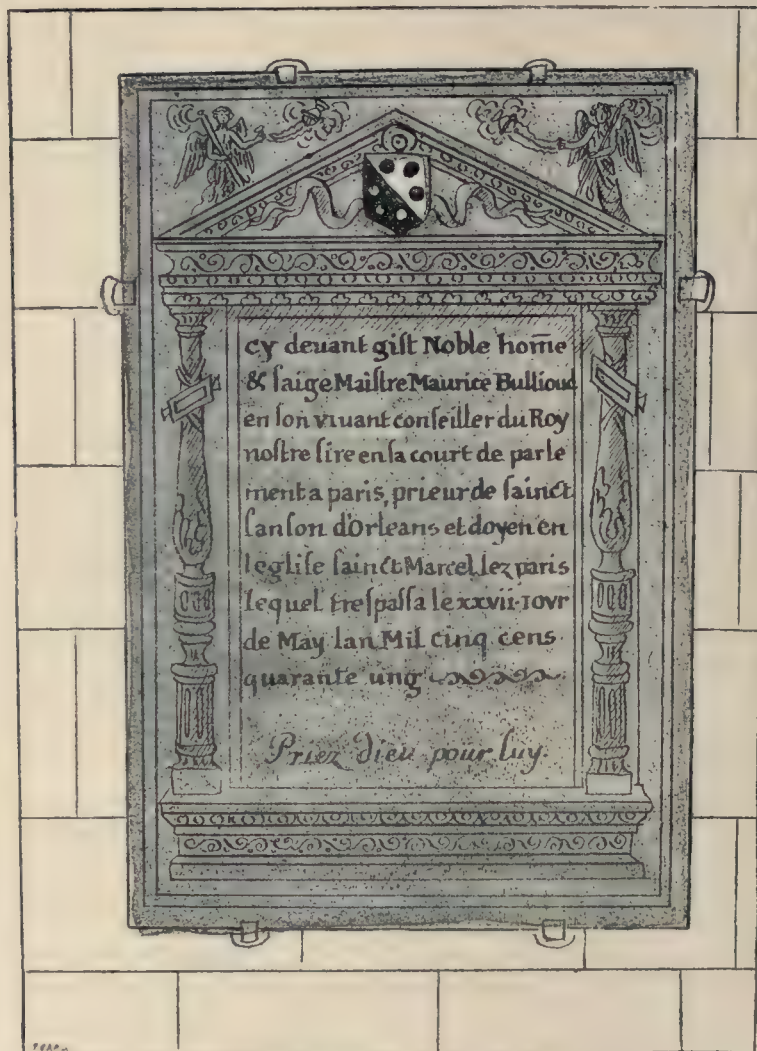 cy deuant gist Noble hom̄e
& saige Maistre Maurice Bullioud
en son viuant conseiller du Roy
nostre sire en sa court de parle
ment a paris, prieur de sainct
sanson d'Orleans et doyen en
leglise sainct Marcel lez paris
lequel trespassa le xxvii·iovr
de May lan Mil cinq cens
quarante ung
Priez dieu pour luy.